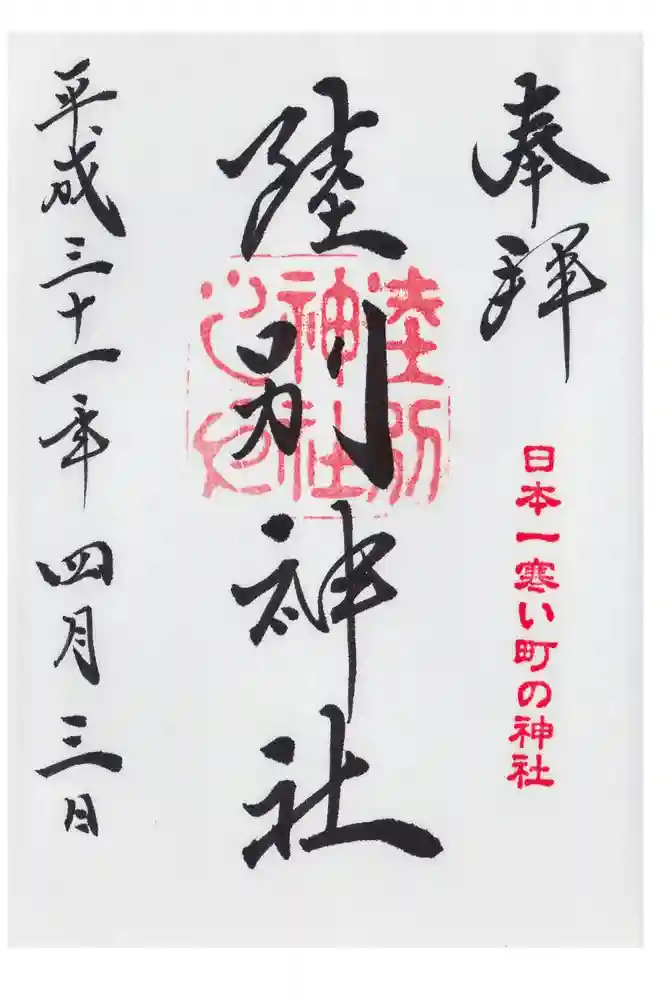 奉拝
日本一寒い町の神社
陸別神社
陸別
神社
之印
平成三十一年四月三日